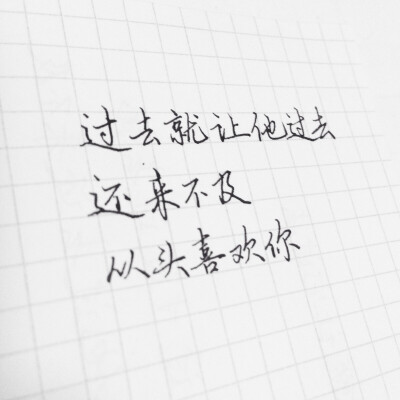 过去就让他过去
还来不及
从头喜欢你